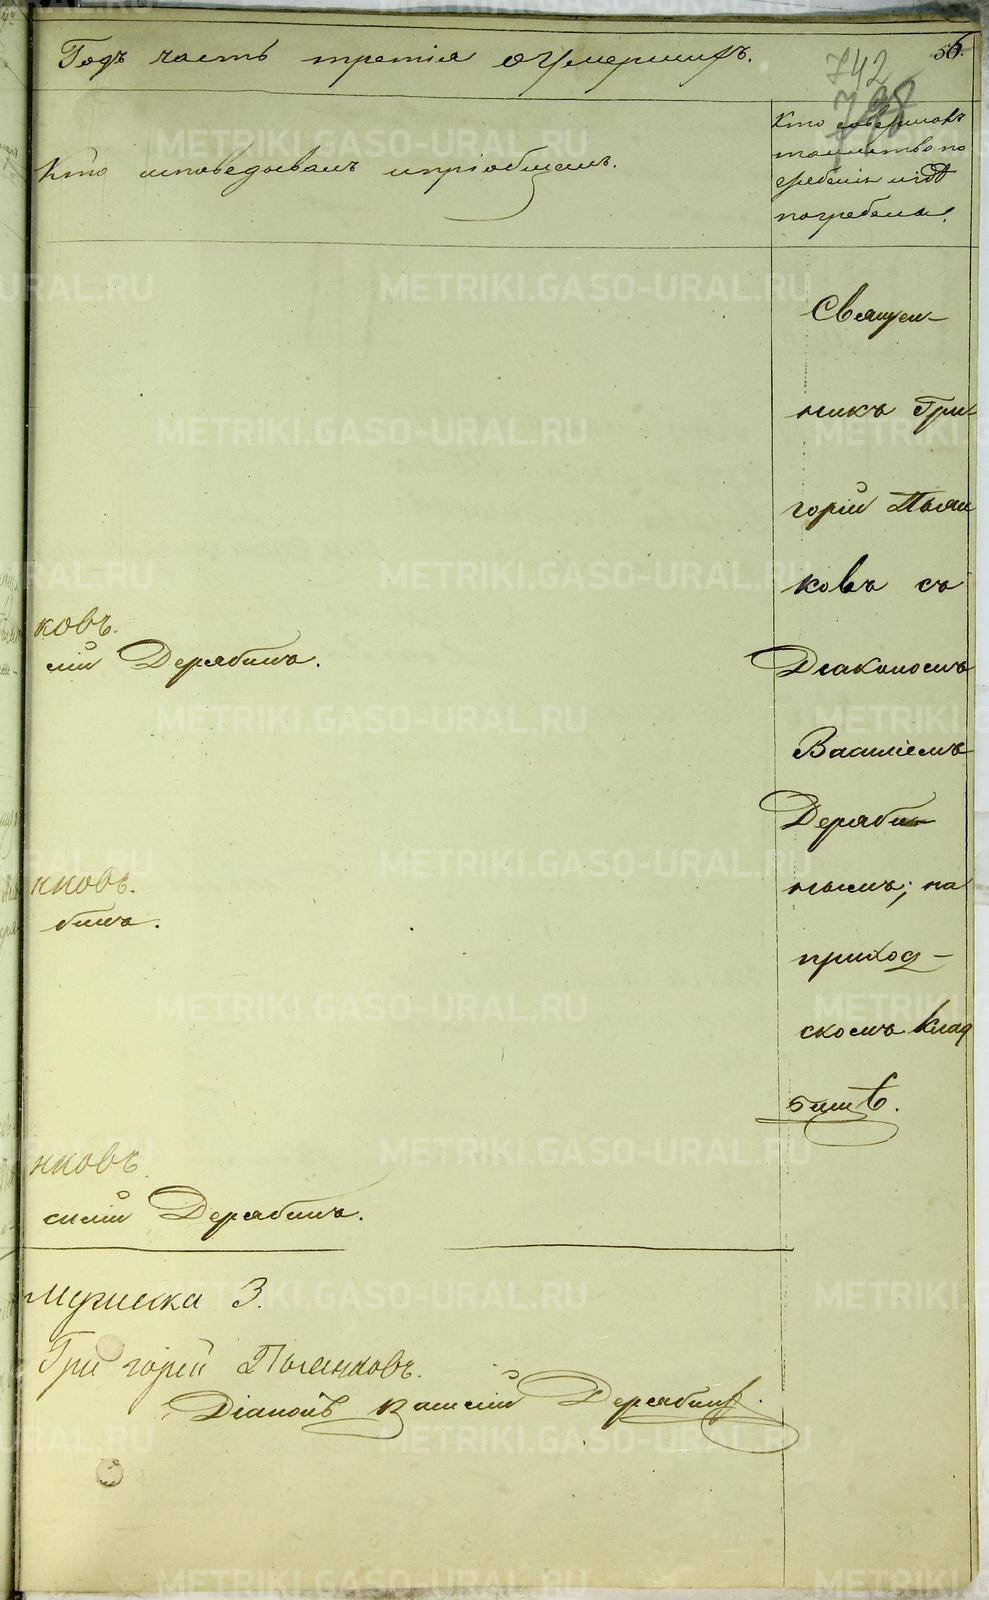 Годъ часть третія о умершихъ.
742
56.
Кто исповедывалъ и пріобщалъ.
Кто совершалъ
таинство по
гребенія и гдѣ
погребены.
Священ-
никъ Гри-
горій Пьян
ковъ съ
Діакономъ
Василіемъ
Дерябин-
нымъ; на
приход-
скомъ клад
бищѣ.
ковъ.
лій Дерябинъ.
нковъ.
бинъ.
нковъ.
силій Дерябинъ.
Мужеска 3.
Григорій Пьянковъ.
Діаконъ Василій Дерябинъ.
METRIKI.GASO-URAL.RU